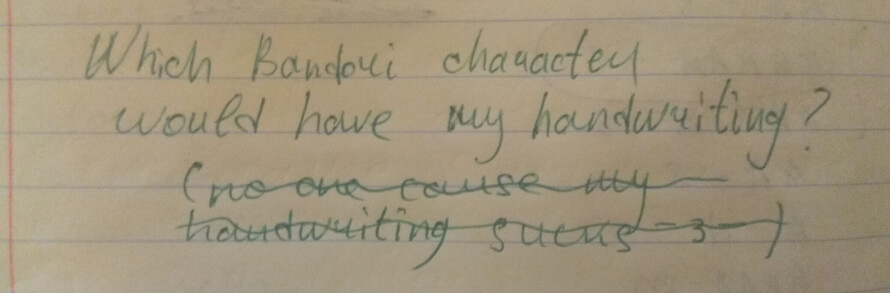 Which Bandori character
would have my handwriting?
(no one cause my
handwriting sucks -3-)